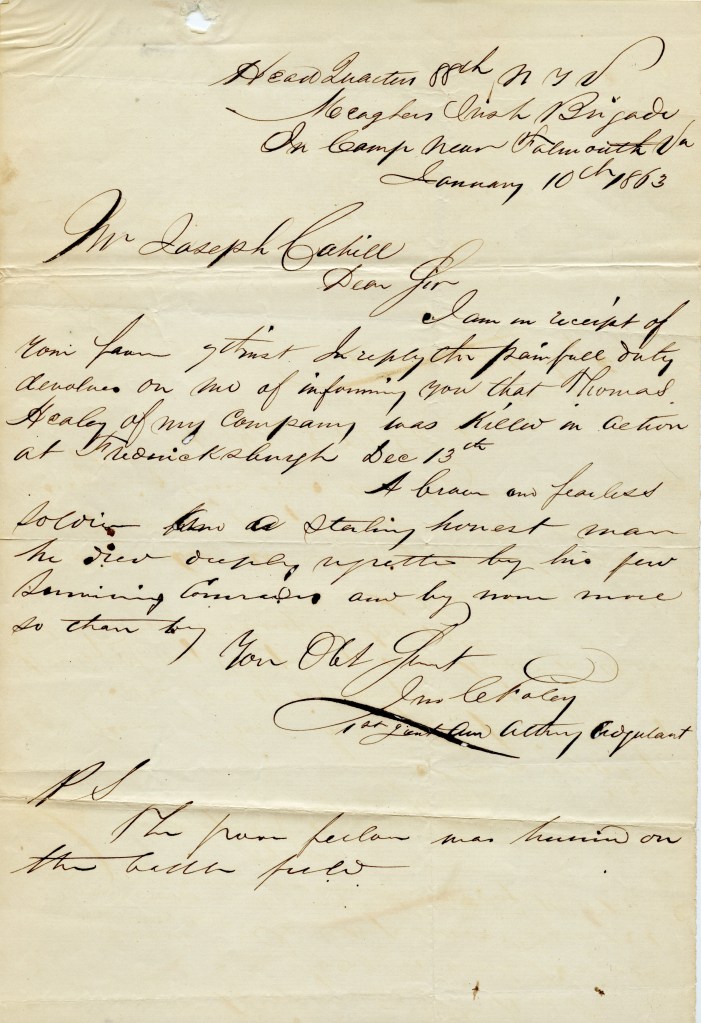 Head Quarters 88th N Y V
Meaghers Irish Brigade
In Camp near Falmouth Va
January 10th 1863
Mr Joseph Cahill
Dear Sir
I am in receipt of
your favor 7th inst In reply the painfull duty
devolves on me of informing you that Thomas
Healey of my Company was Killed in action
at Fredricksburgh Dec 13th
A brave and fearless
soldier a sterling honest man
he died deeply regretted by his few
surviving Comrades and by none more
so than by
Your Obt Servt
Jno C Foley
1st Lieut and Acting Adjutant
P S
The poor fellow was buried on
the battle field